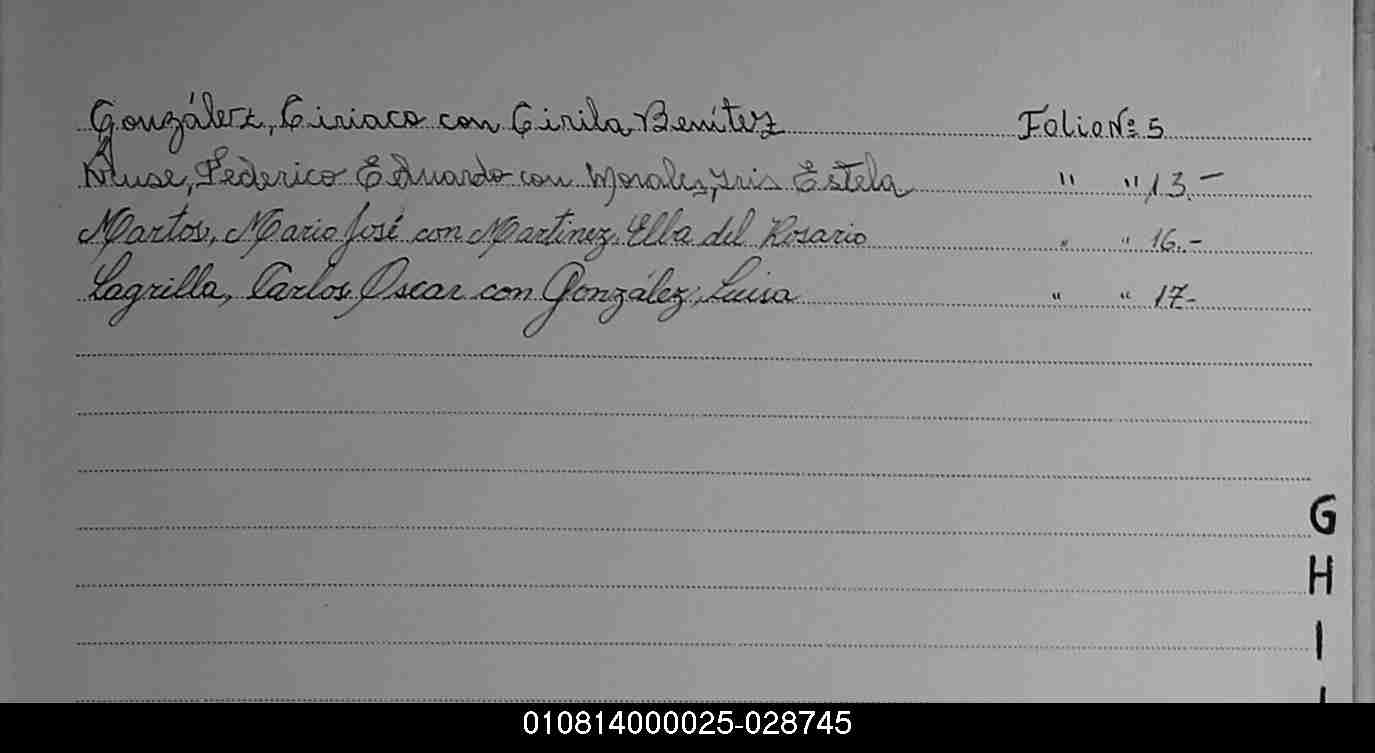 González, Ciriaco con Cirila Benítez Folio Nº 5
Kruse, Federico Eduardo con Morales, Iris Estela " " 13.-
Martos, Mario José con Martinez, Elba del Rosario " " 16.-
Lagrilla, Carlos Oscar con González, Luisa " " 17-
G
H
I
010814000025-028745